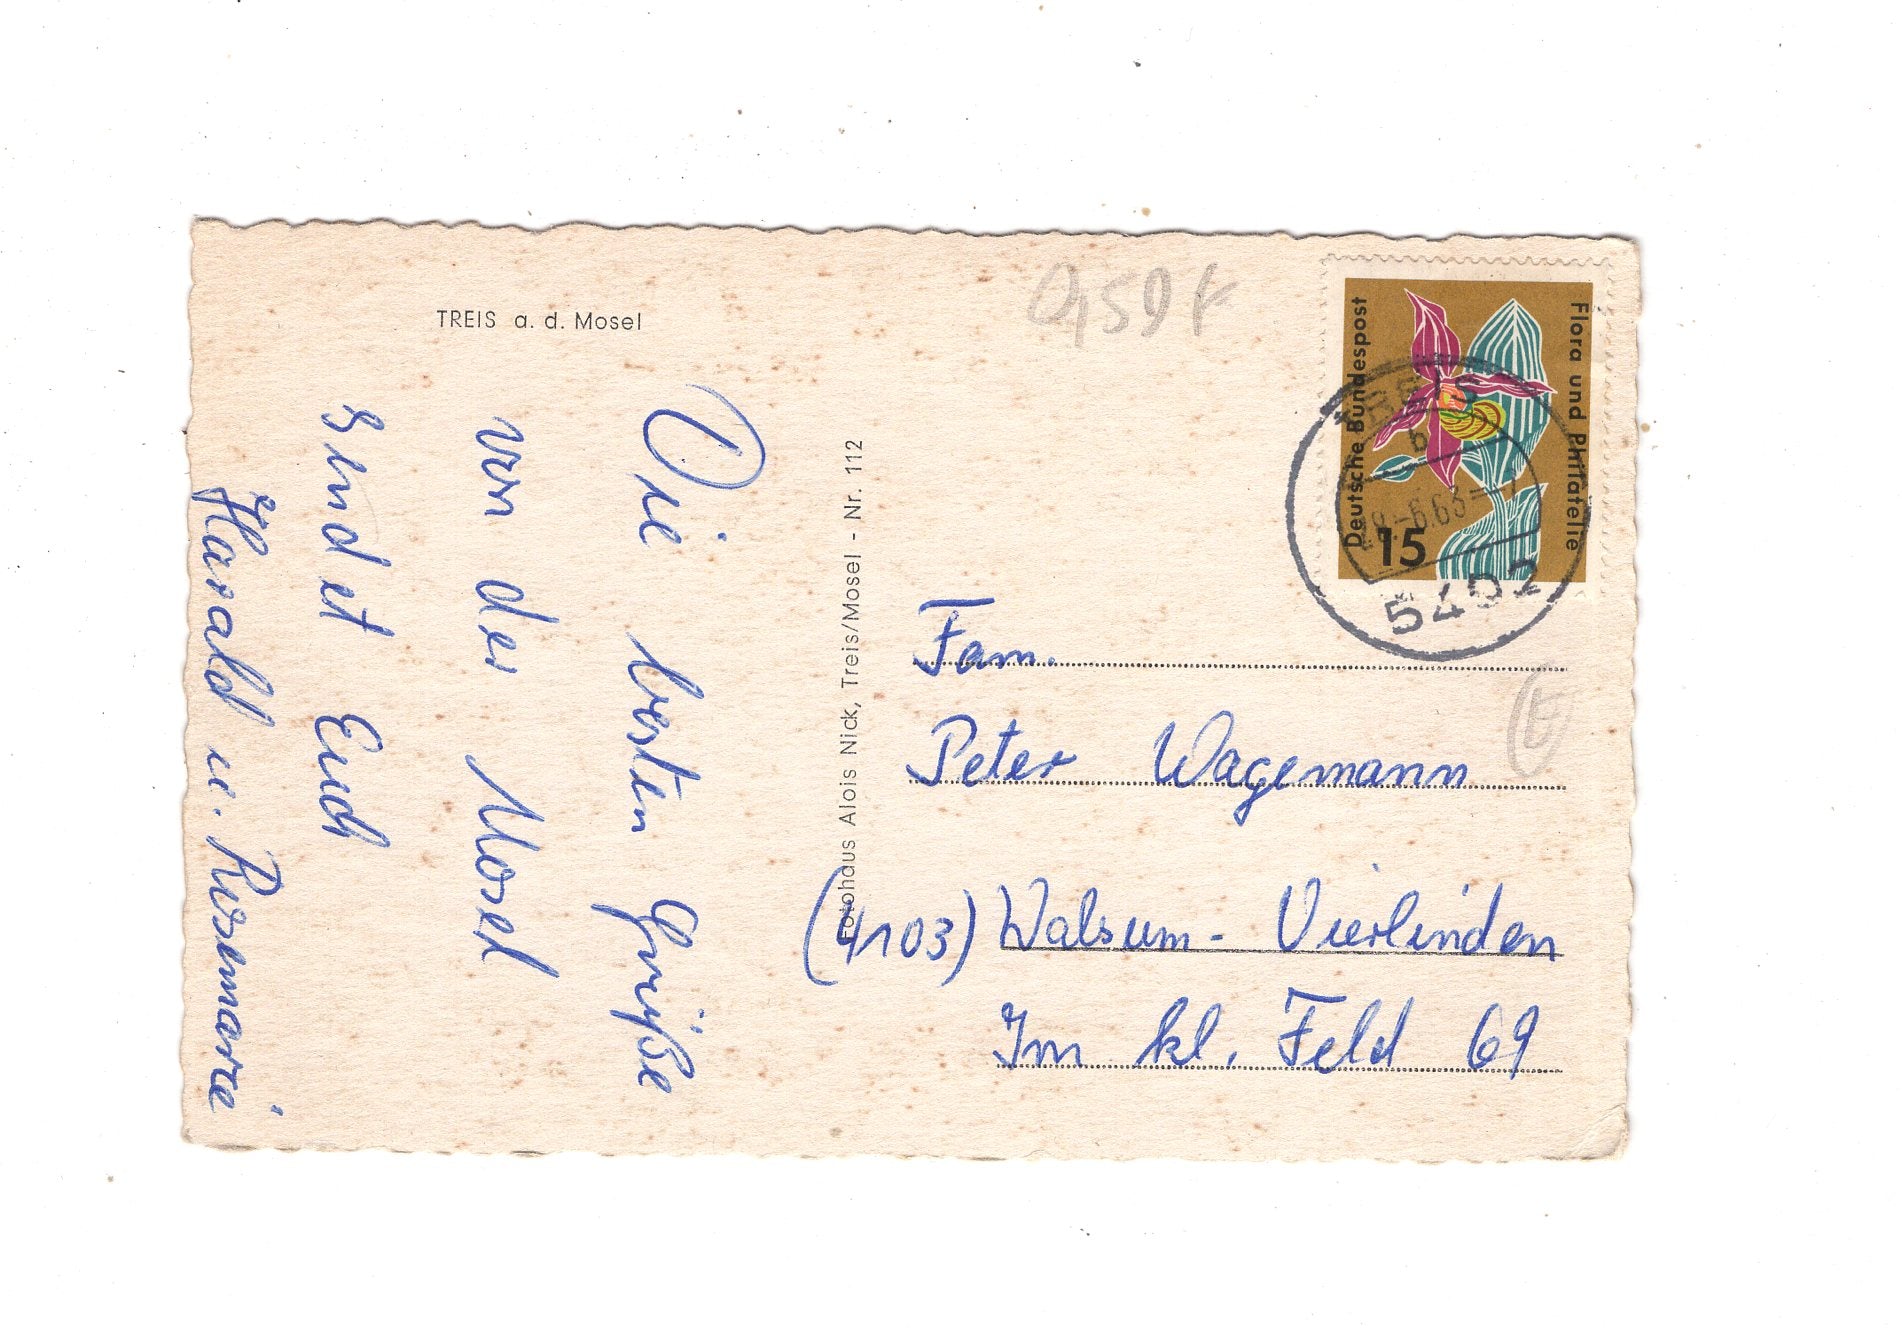 TREIS a. d. Mosel
Die besten Grüße
von der Mosel
sendet Euch
Harald u. Rosemarie
Fotohaus Alois Nick, Treis/Mosel - Nr. 112
0,50 €
Deutsche Bundespost
Flora und Philatelie
15
TREIS
b
-6.63-
5402
Fam.
Peter Wagemann
(4103) Walsum - Vierlinden
Im kl. Feld 69
E